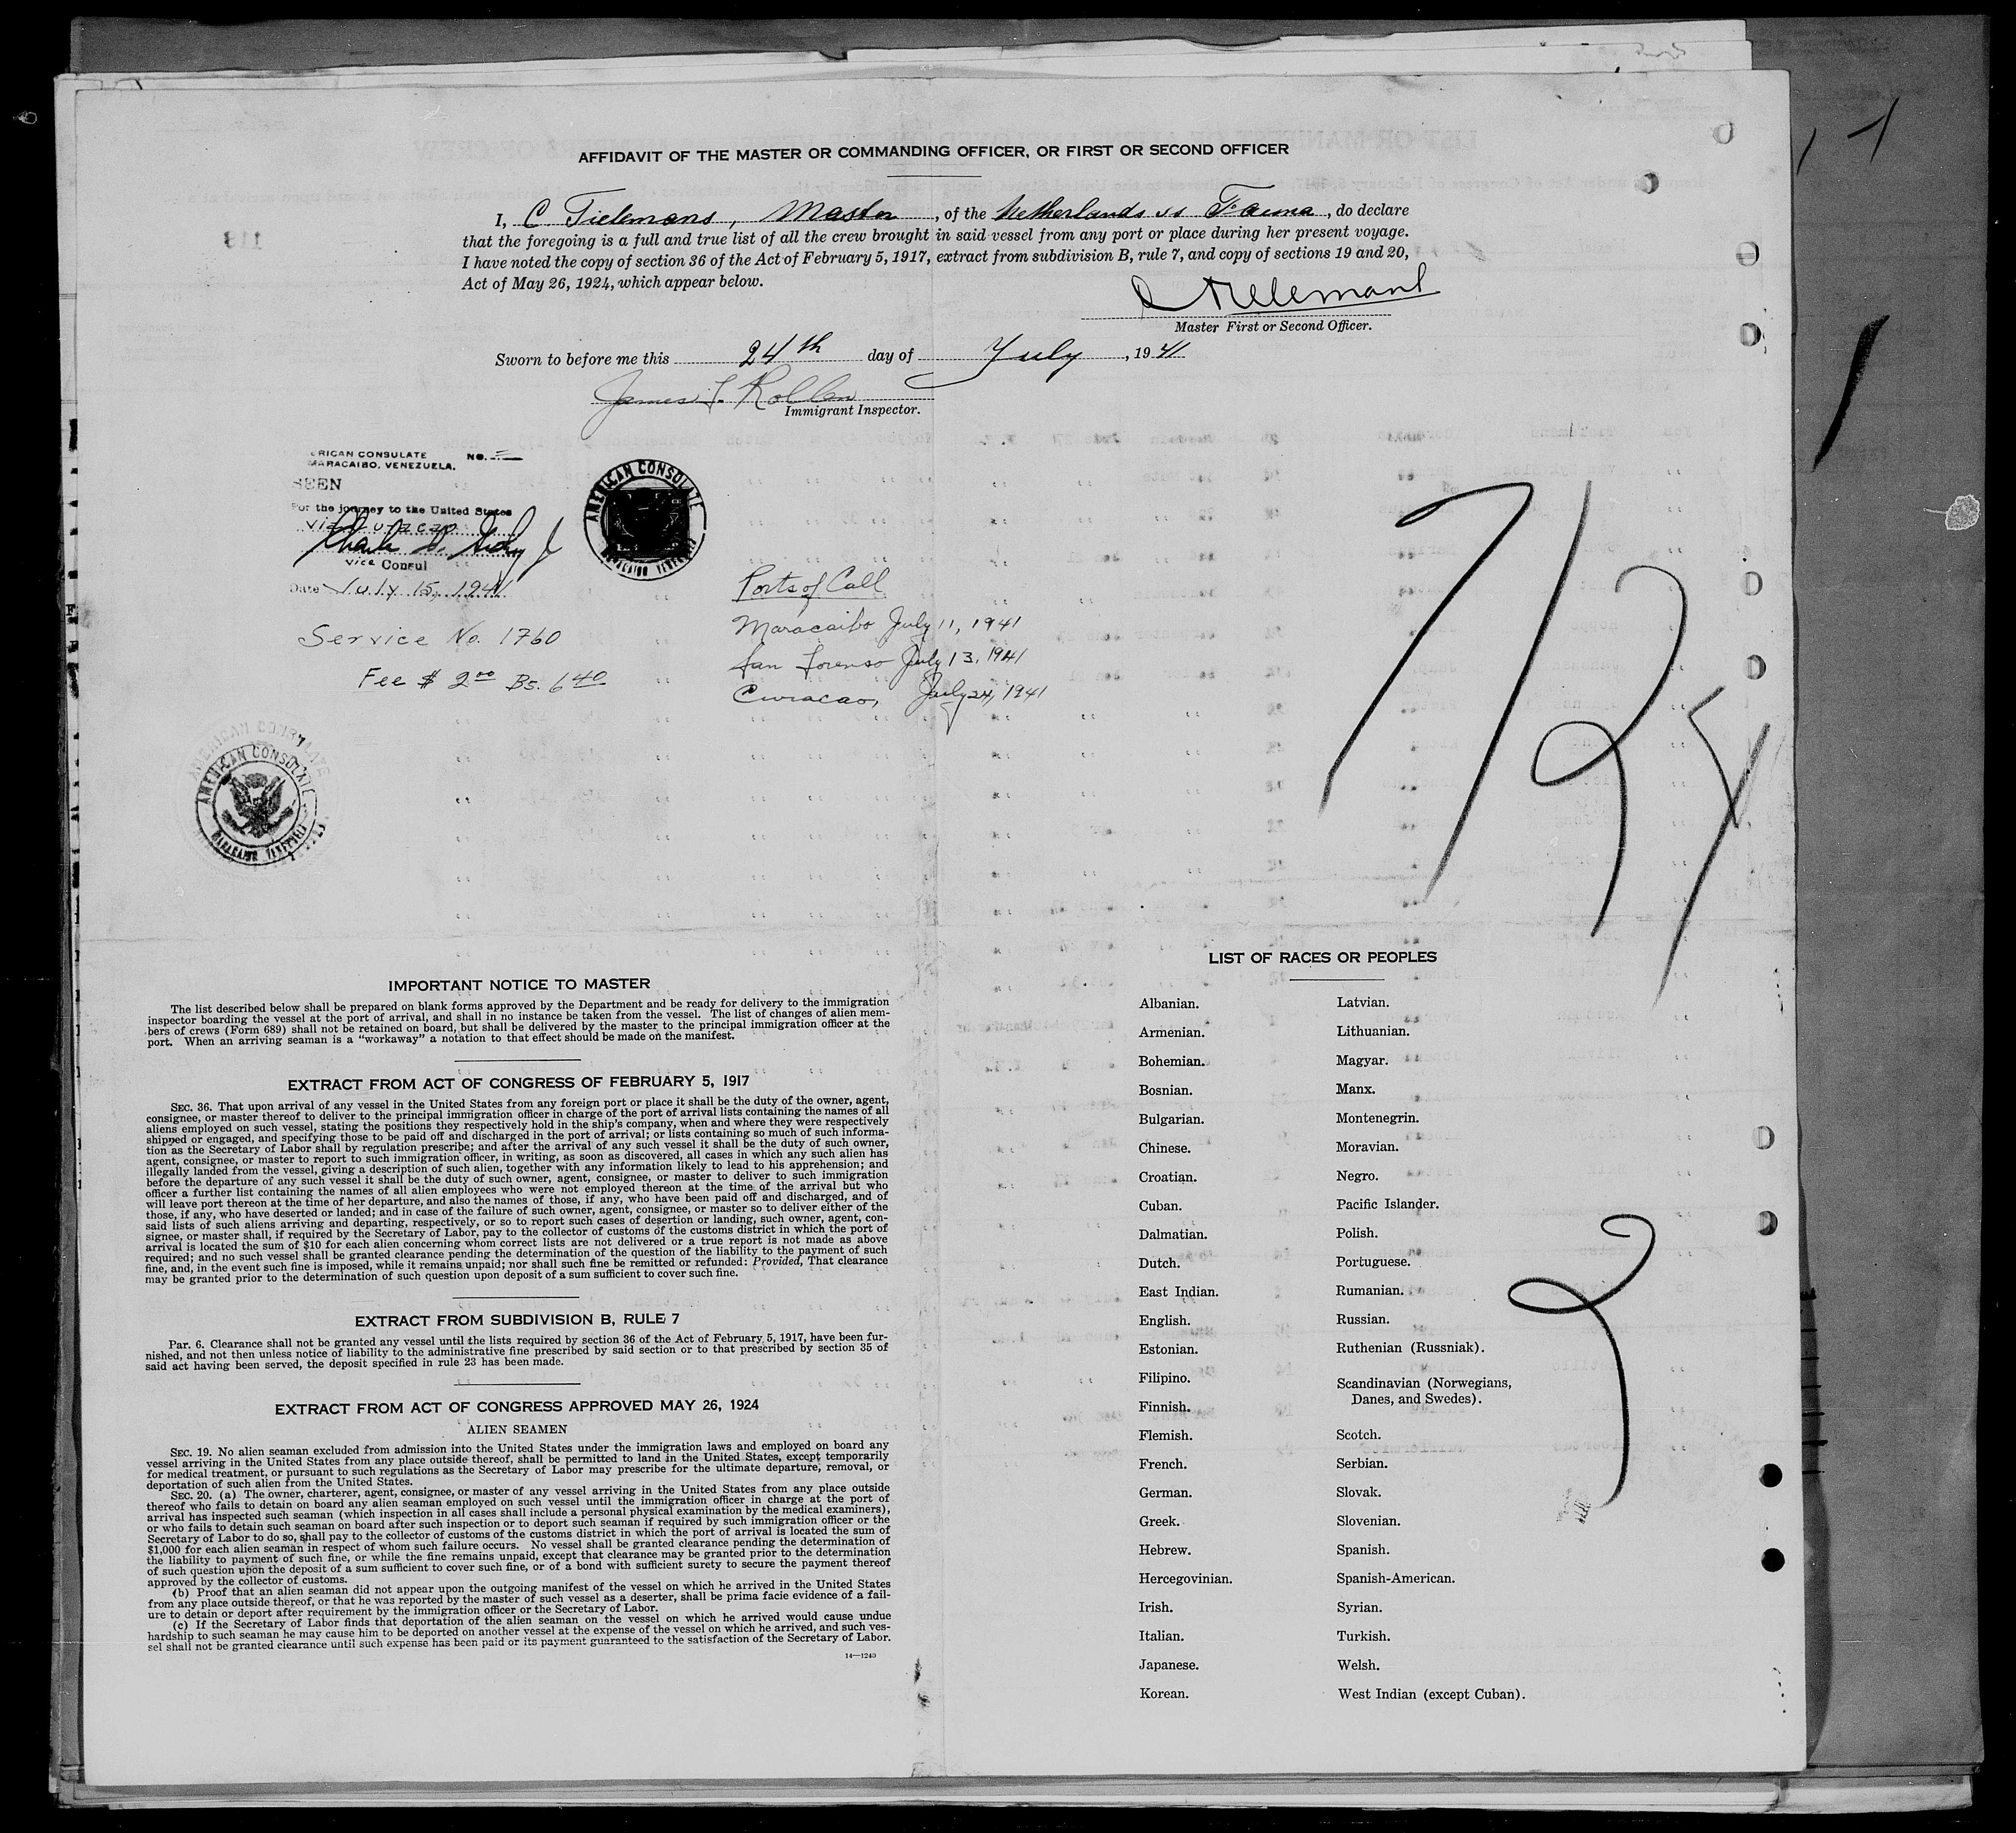 AFFIDAVIT OF THE MASTER OR COMMANDING OFFICER, OR FIRST OR SECOND OFFICER
I, C Tielemans, Master, of the Netherlands ss Fauna, do declare
that the foregoing is a full and true list of all the crew brought in said vessel from any port or place during her present voyage.
I have noted the copy of section 36 of the Act of February 5, 1917, extract from subdivision B, rule 7, and copy of sections 19 and 20,
Act of May 26, 1924, which appear below.
C Tielemans
Master First or Second Officer.
Sworn to before me this 24th day of July, 1941
James
Immigrant Inspector.
ERICAN CONSULATE NO.
MARACAIBO, VENEZUELA.
SEEN
For the journey to the United States
via Curacao
Vice Consul
Date July 15, 1941
Service No. 1760
Fee $ 2.00 Bs. 6.40
AMERICAN CONSULATE
MARACAIBO VENEZUELA
Ports of Call
Maracaibo July 11, 1941
San Lorenso July 13, 1941
Curacao, July 24, 1941
AMERICAN CONSULATE
MARACAIBO VENEZUELA
7/24
2
IMPORTANT NOTICE TO MASTER
The list described below shall be prepared on blank forms approved by the Department and be ready for delivery to the immigration
inspector boarding the vessel at the port of arrival, and shall in no instance be taken from the vessel. The list of changes of alien mem-
bers of crews (Form 689) shall not be retained on board, but shall be delivered by the master to the principal immigration officer at the
port. When an arriving seaman is a "workaway" a notation to that effect should be made on the manifest.
EXTRACT FROM ACT OF CONGRESS OF FEBRUARY 5, 1917
SEC. 36. That upon arrival of any vessel in the United States from any foreign port or place it shall be the duty of the owner, agent,
consignee, or master thereof to deliver to the principal immigration officer in charge of the port of arrival lists containing the names of all
aliens employed on such vessel, stating the positions they respectively hold in the ship's company, when and where they were respectively
shipped or engaged, and specifying those to be paid off and discharged in the port of arrival; or lists containing so much of such informa-
tion as the Secretary of Labor shall by regulation prescribe; and after the arrival of any such vessel it shall be the duty of such owner,
agent, consignee, or master to report to such immigration officer, in writing, as soon as discovered, all cases in which any such alien has
illegally landed from the vessel, giving a description of such alien, together with any information likely to lead to his apprehension; and
before the departure of any such vessel it shall be the duty of such owner, agent, consignee, or master to deliver to such immigration
officer a further list containing the names of all alien employees who were not employed thereon at the time of the arrival but who
will leave port thereon at the time of her departure, and also the names of those, if any, who have been paid off and discharged, and of
those, if any, who have deserted or landed; and in case of the failure of such owner, agent, consignee, or master so to deliver either of the
said lists of such aliens arriving and departing, respectively, or so to report such cases of desertion or landing, such owner, agent, con-
signee, or master shall, if required by the Secretary of Labor, pay to the collector of customs of the customs district in which the port of
arrival is located the sum of $10 for each alien concerning whom correct lists are not delivered or a true report is not made as above
required; and no such vessel shall be granted clearance pending the determination of the question of the liability to the payment of such
fine, and, in the event such fine is imposed, while it remains unpaid; nor shall such fine be remitted or refunded: Provided, That clearance
may be granted prior to the determination of such question upon deposit of a sum sufficient to cover such fine.
EXTRACT FROM SUBDIVISION B, RULE 7
Par. 6. Clearance shall not be granted any vessel until the lists required by section 36 of the Act of February 5, 1917, have been fur-
nished, and not then unless notice of liability to the administrative fine prescribed by said section or to that prescribed by section 35 of
said act having been served, the deposit specified in rule 23 has been made.
EXTRACT FROM ACT OF CONGRESS APPROVED MAY 26, 1924
ALIEN SEAMEN
SEC. 19. No alien seaman excluded from admission into the United States under the immigration laws and employed on board any
vessel arriving in the United States from any place outside thereof, shall be permitted to land in the United States, except temporarily
for medical treatment, or pursuant to such regulations as the Secretary of Labor may prescribe for the ultimate departure, removal, or
deportation of such alien from the United States.
SEC. 20. (a) The owner, charterer, agent, consignee, or master of any vessel arriving in the United States from any place outside
thereof who fails to detain on board any alien seaman employed on such vessel until the immigration officer in charge at the port of
arrival has inspected such seaman (which inspection in all cases shall include a personal physical examination by the medical examiners),
or who fails to detain such seaman on board after such inspection or to deport such seaman if required by such immigration officer or the
Secretary of Labor to do so, shall pay to the collector of customs of the customs district in which the port of arrival is located the sum of
$1,000 for each alien seaman in respect of whom such failure occurs. No vessel shall be granted clearance pending the determination of
the liability to payment of such fine, or while the fine remains unpaid, except that clearance may be granted prior to the determination
of such question upon the deposit of a sum sufficient to cover such fine, or of a bond with sufficient surety to secure the payment thereof
approved by the collector of customs.
(b) Proof that an alien seaman did not appear upon the outgoing manifest of the vessel on which he arrived in the United States
from any place outside thereof, or that he was reported by the master of such vessel as a deserter, shall be prima facie evidence of a fail-
ure to detain or deport after requirement by the immigration officer or the Secretary of Labor.
(c) If the Secretary of Labor finds that deportation of the alien seaman on the vessel on which he arrived would cause undue
hardship to such seaman he may cause him to be deported on another vessel at the expense of the vessel on which he arrived, and such ves-
sel shall not be granted clearance until such expense has been paid or its payment guaranteed to the satisfaction of the Secretary of Labor.
14—1240
LIST OF RACES OR PEOPLES
Albanian.
Armenian.
Bohemian.
Bosnian.
Bulgarian.
Chinese.
Croatian.
Cuban.
Dalmatian.
Dutch.
East Indian.
English.
Estonian.
Filipino.
Finnish.
Flemish.
French.
German.
Greek.
Hebrew.
Hercegovinian.
Irish.
Italian.
Japanese.
Korean.
Latvian.
Lithuanian.
Magyar.
Manx.
Montenegrin.
Moravian.
Negro.
Pacific Islander.
Polish.
Portuguese.
Rumanian.
Russian.
Ruthenian (Russniak).
Scandinavian (Norwegians,
Danes, and Swedes).
Scotch.
Serbian.
Slovak.
Slovenian.
Spanish.
Spanish-American.
Syrian.
Turkish.
Welsh.
West Indian (except Cuban).